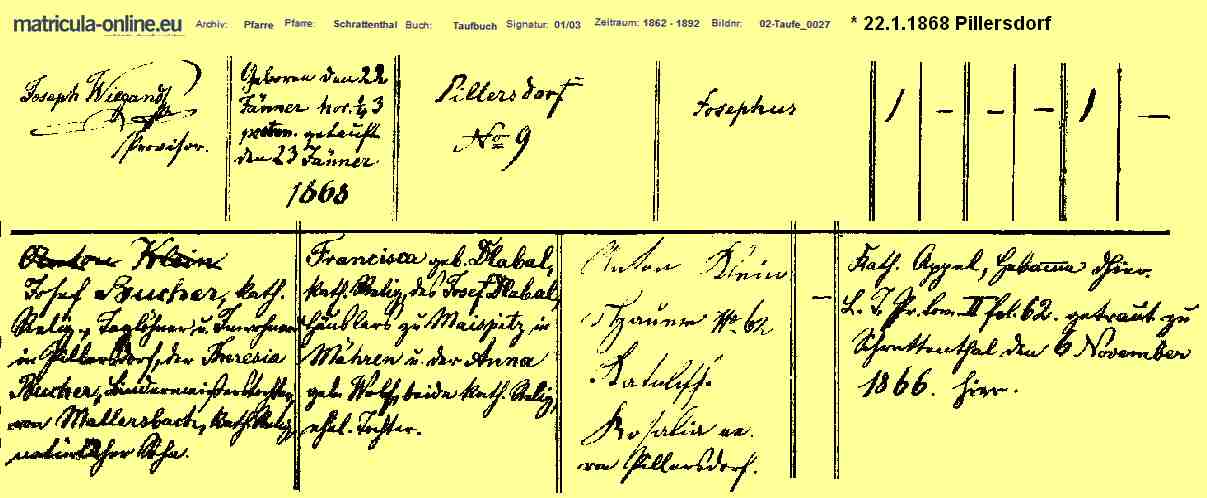 matricula-online.eu Archiv: Pfarre Pfarre: Schrattenthal Buch: Taufbuch Signatur: 01/03 Zeitraum: 1862 - 1892 Bildnr: 02-Taufe_0027 * 22.1.1868 Pillersdorf
Joseph Wiegandt
Provisor.
Geboren den 22
Jänner vor. ½ 3
getauft
den 23 Jänner
1868
Pillersdorf
No 9
Josephus
1 - - - 1 -
Anton Klein
Josef Bucher, kath.
Relig. Taglöhner u. Inwohner
in Pillersdorf, der Theresia
Bucher,
von Mallersbach, kath. Relig.
natürlicher Sohn.
Francisca geb. Dlabal,
kath. Relig. des Josef Dlabal,
Häuslers zu Maispitz in
Mähren u. der Anna
geb. Wolf, beide kath. Relig.
ehel. Tochter.
Anton Klein
No. 62
Rosalia
von Pillersdorf.
-
Kath. Appel, Hebamme
L. T. Pr. tom. II fol. 62. getraut zu
Schrattenthal den 6 November
1866. hier.